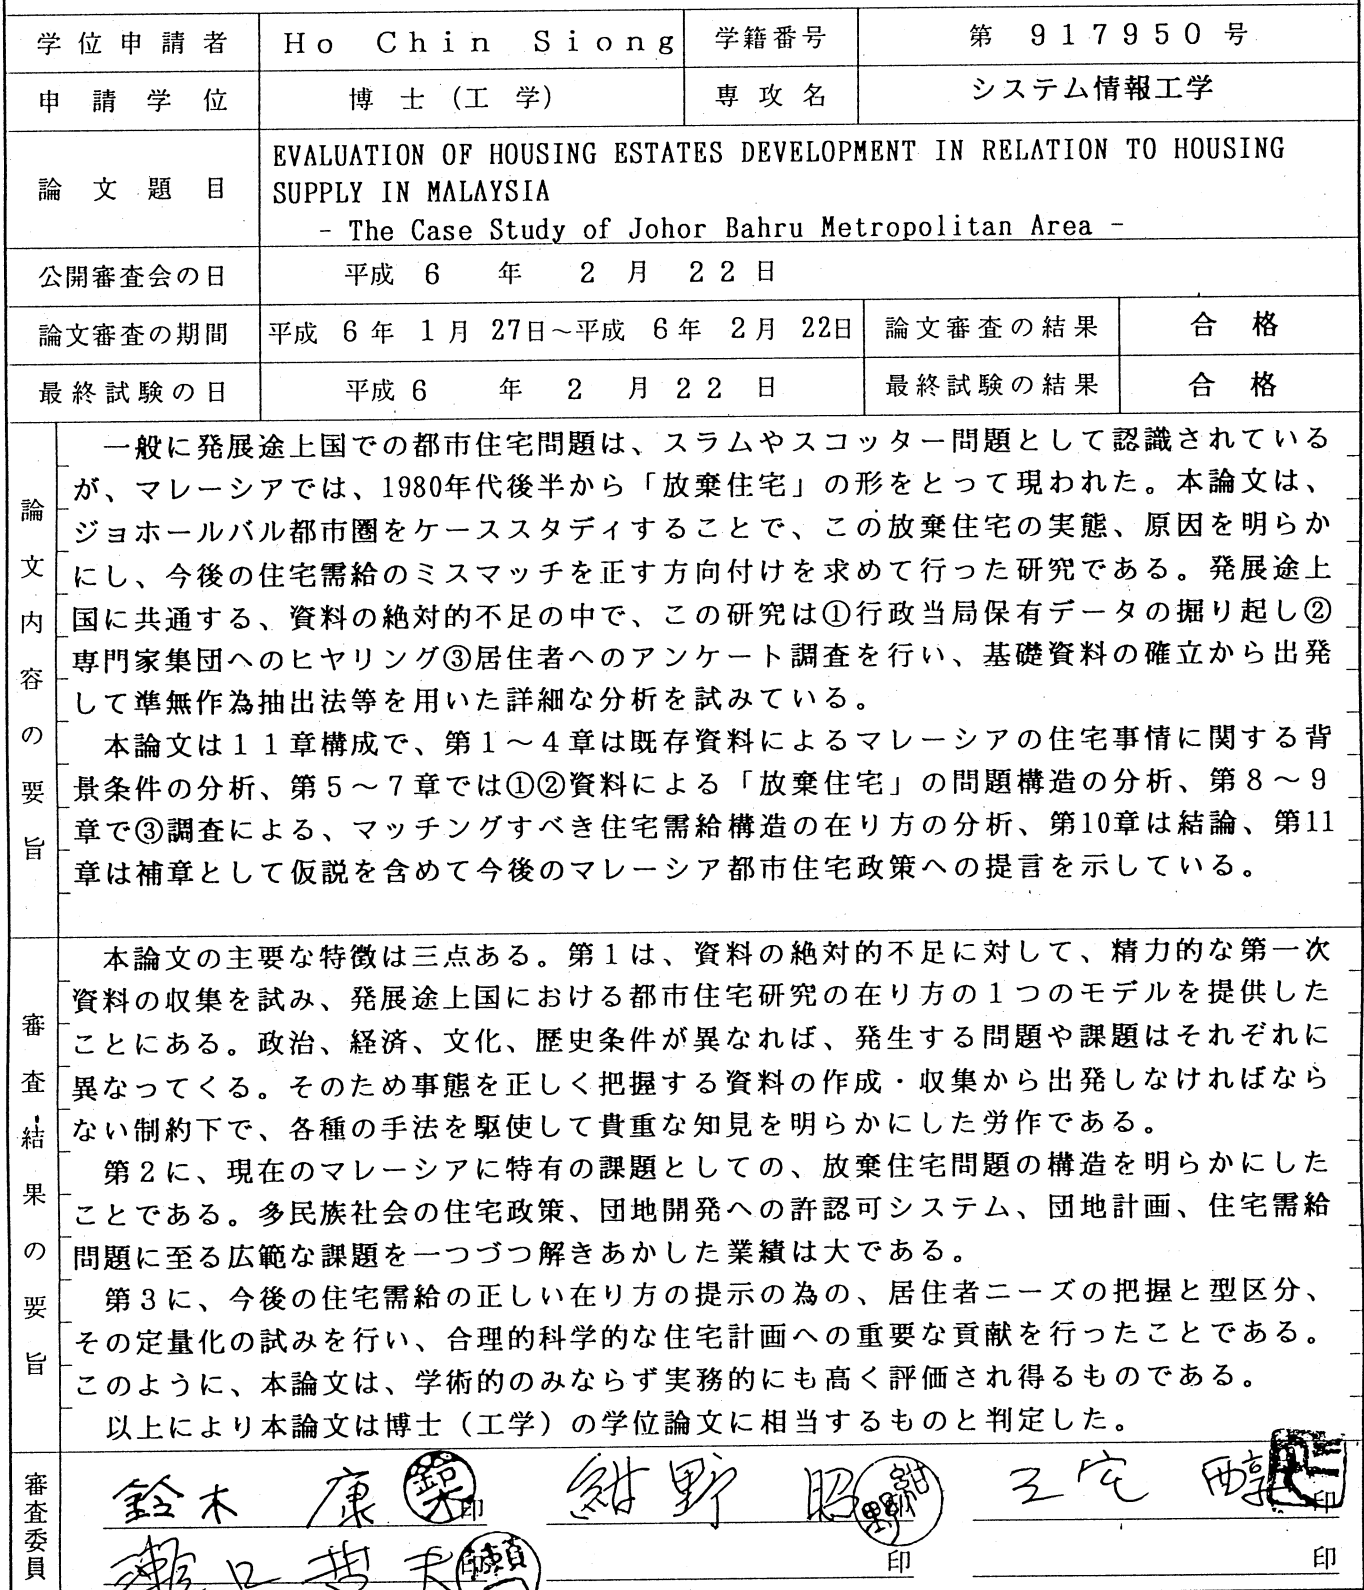 学位申請者 Ho Chin Siong 学籍番号 第 917950 号
申請学位 博士(工学) 専攻名 システム情報工学
論文題目 EVALUATION OF HOUSING ESTATES DEVELOPMENT IN RELATION TO HOUSING
SUPPLY IN MALAYSIA
- The Case Study of Johor Bahru Metropolitan Area -
公開審査会の日 平成 6 年 2 月 22 日
論文審査の期間 平成 6年 1月 27日~平成 6年 2月 22日 論文審査の結果 合格
最終試験の日 平成 6 年 2 月 22 日 最終試験の結果 合格
論文内容の要旨
一般に発展途上国での都市住宅問題は、スラムやスコッター問題として認識されている
が、マレーシアでは、1980年代後半から「放棄住宅」の形をとって現われた。本論文は、
ジョホールバル都市圏をケーススタディすることで、この放棄住宅の実態、原因を明らか
にし、今後の住宅需給のミスマッチを正す方向付けを求めて行った研究である。発展途上
国に共通する、資料の絶対的不足の中で、この研究は①行政当局保有データの掘り起し②
専門家集団へのヒヤリング③居住者へのアンケート調査を行い、基礎資料の確立から出発
して準無作為抽出法等を用いた詳細な分析を試みている。
本論文は11章構成で、第1~4章は既存資料によるマレーシアの住宅事情に関する背
景条件の分析、第5~7章では①②資料による「放棄住宅」の問題構造の分析、第8~9
章で③調査による、マッチングすべき住宅需給構造の在り方の分析、第10章は結論、第11
章は補章として仮説を含めて今後のマレーシア都市住宅政策への提言を示している。
審査結果の要旨
本論文の主要な特徴は三点ある。第1は、資料の絶対的不足に対して、精力的な第一次
資料の収集を試み、発展途上国における都市住宅研究の在り方の1つのモデルを提供した
ことにある。政治、経済、文化、歴史条件が異なれば、発生する問題や課題はそれぞれに
異なってくる。そのため事態を正しく把握する資料の作成・収集から出発しなければなら
ない制約下で、各種の手法を駆使して貴重な知見を明らかにした労作である。
第2に、現在のマレーシアに特有の課題としての、放棄住宅問題の構造を明らかにした
ことである。多民族社会の住宅政策、団地開発への許認可システム、団地計画、住宅需給
問題に至る広範な課題を一つづつ解きあかした業績は大である。
第3に、今後の住宅需給の正しい在り方の提示の為の、居住者ニーズの把握と型区分、
その定量化の試みを行い、合理的科学的な住宅計画への重要な貢献を行ったことである。
このように、本論文は、学術的のみならず実務的にも高く評価され得るものである。
以上により本論文は博士(工学)の学位論文に相当するものと判定した。
審査委員 鈴木 康 印 紺野 昭 三宅 醇 印
瀬口 哲夫 印 印 印